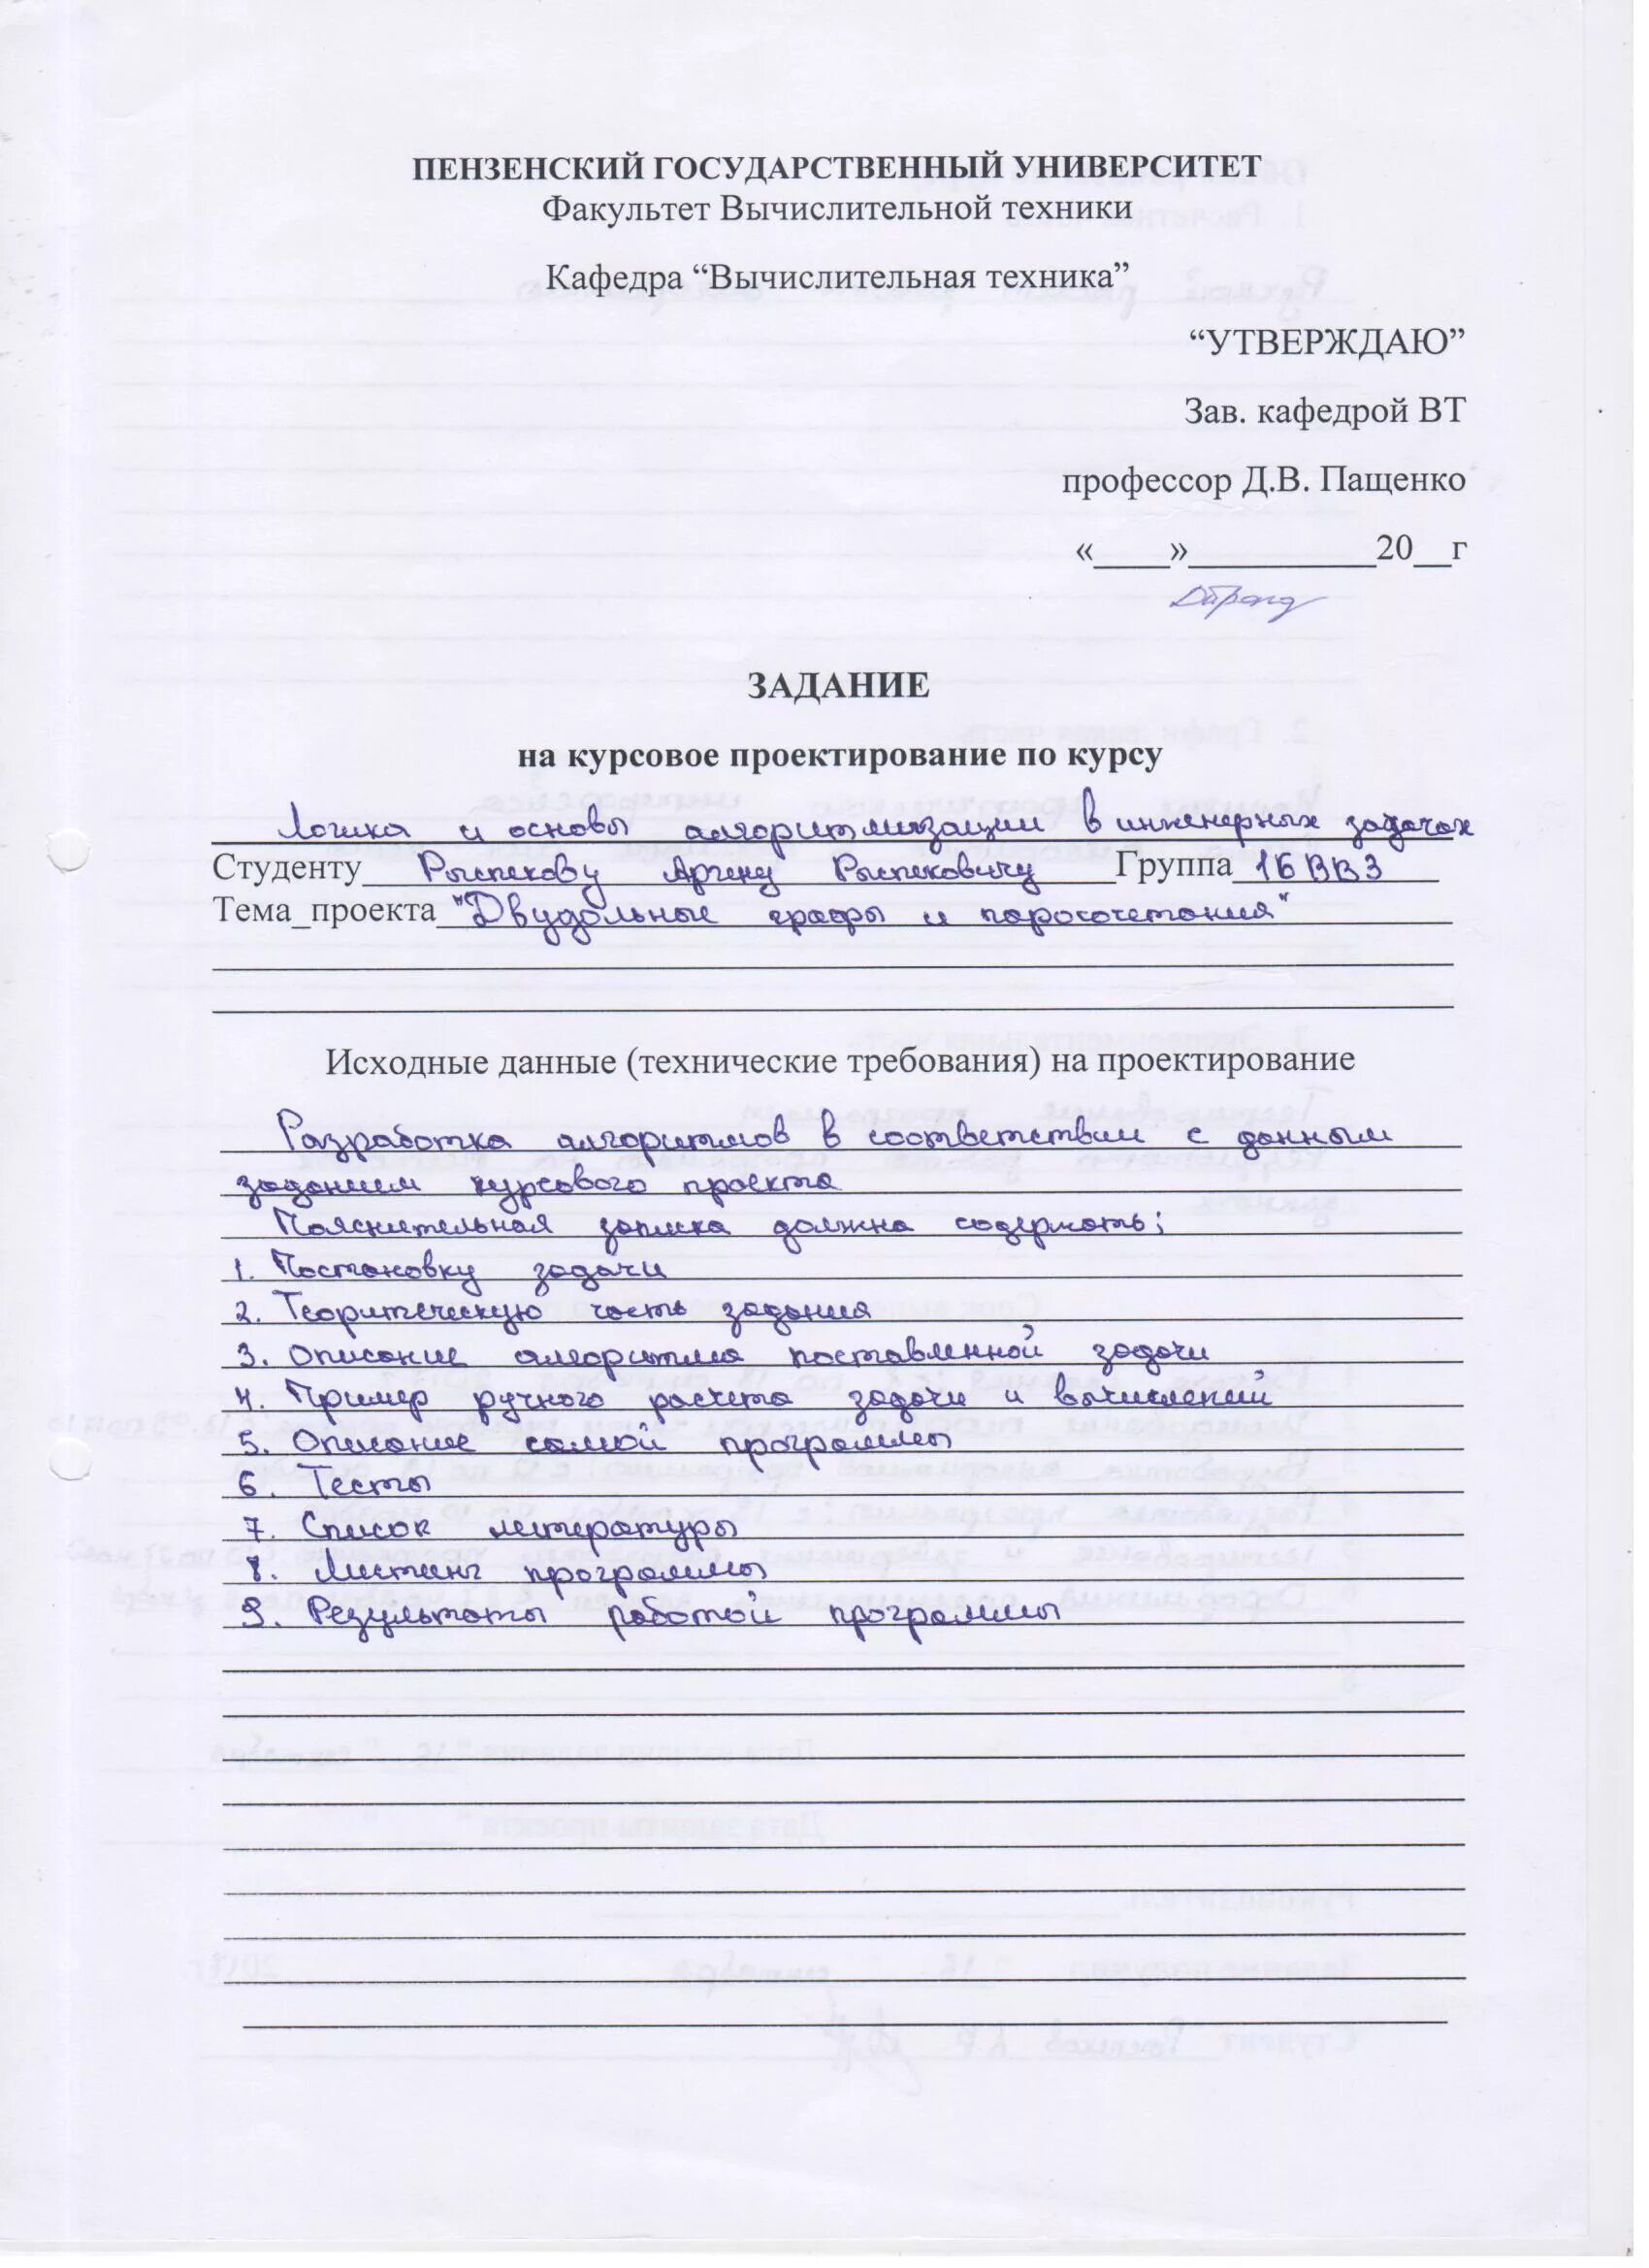 ПЕНЗЕНСКИЙ ГОСУДАРСТВЕННЫЙ УНИВЕРСИТЕТ
Факультет Вычислительной техники
Кафедра “Вычислительная техника”
“УТВЕРЖДАЮ”
Зав. кафедрой ВТ
профессор Д.В. Пащенко
«____»__________20__г
ЗАДАНИЕ
на курсовое проектирование по курсу
Логика и основы алгоритмизации в инженерных задачах
Студенту Рыспекову Аргену Рыспековичу Группа 16ВВ3
Тема_проекта "Двудольные графы и паросочетания"
Исходные данные (технические требования) на проектирование
Разработка алгоритмов в соответствии с данным
заданием курсового проекта
Пояснительная записка должна содержать:
1. Постановку задачи
2. Теоритическую часть задания
3. Описание алгоритма поставленной задачи
4. Пример ручного расчета задачи и вычислений
5. Описание самой программы
6. Тесты
7. Список литературы
8. Листинг программы
9. Результаты работой программы